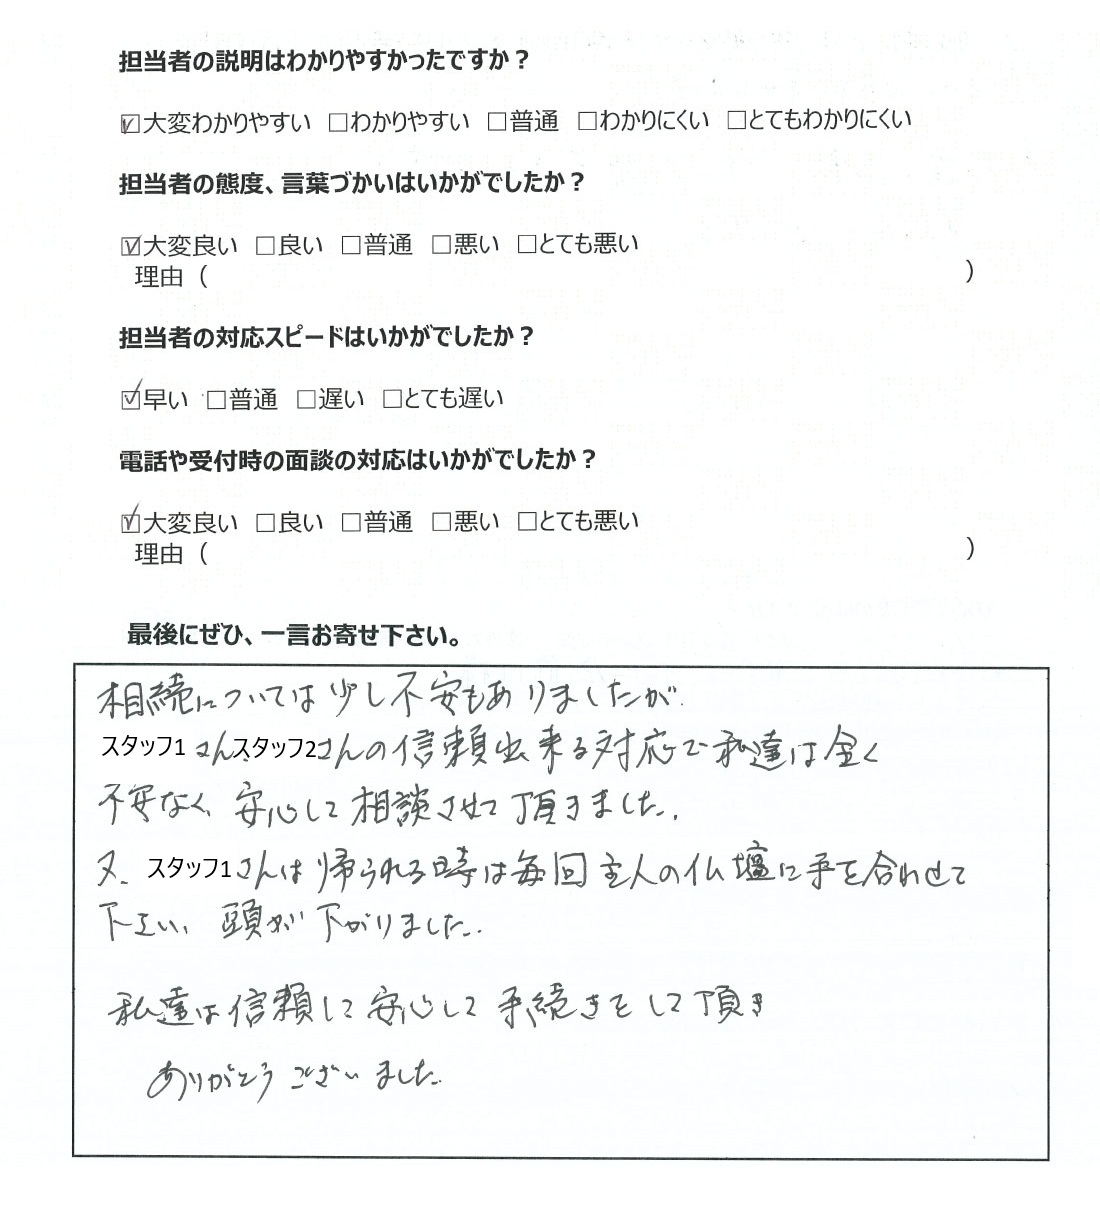 担当者の説明はわかりやすかったですか？
☑大変わかりやすい □わかりやすい □普通 □わかりにくい □とてもわかりにくい
担当者の態度、言葉づかいはいかがでしたか？
☑大変良い □良い □普通 □悪い □とても悪い
理由（ ）
担当者の対応スピードはいかがでしたか？
☑早い □普通 □遅い □とても遅い
電話や受付時の面談の対応はいかがでしたか？
☑大変良い □良い □普通 □悪い □とても悪い
理由（ ）
最後にぜひ、一言お寄せ下さい。
相続については少し不安もありましたが
スタッフ1さん、スタッフ2さんの信頼出来る対応で私達は全く
不安なく、安心して相談させて頂きました。
又、スタッフ1さんは帰られる時は毎回主人の仏壇に手を合わせて
下さい、頭が下がりました。
私達は信頼して安心して手続きをして頂き
ありがとうございました。